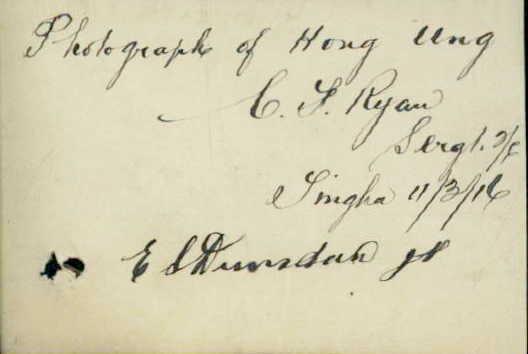 Photograph of Hong Ung
C. S. Ryan
Sergt. 2/c
Singha 11/3/16
E S Dunsdan JP